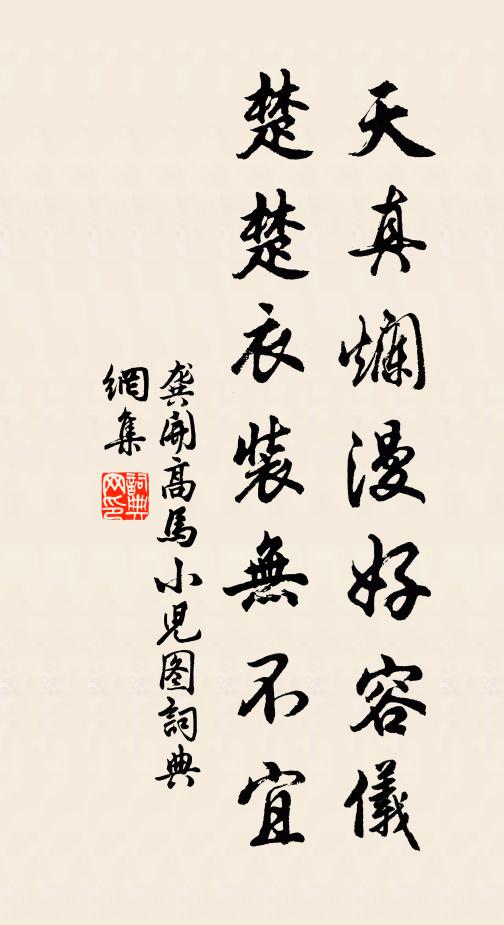 天真爛漫好容儀
楚楚衣裝無不宜
龔開高馬小兒图詞典
網集
詞典
网印